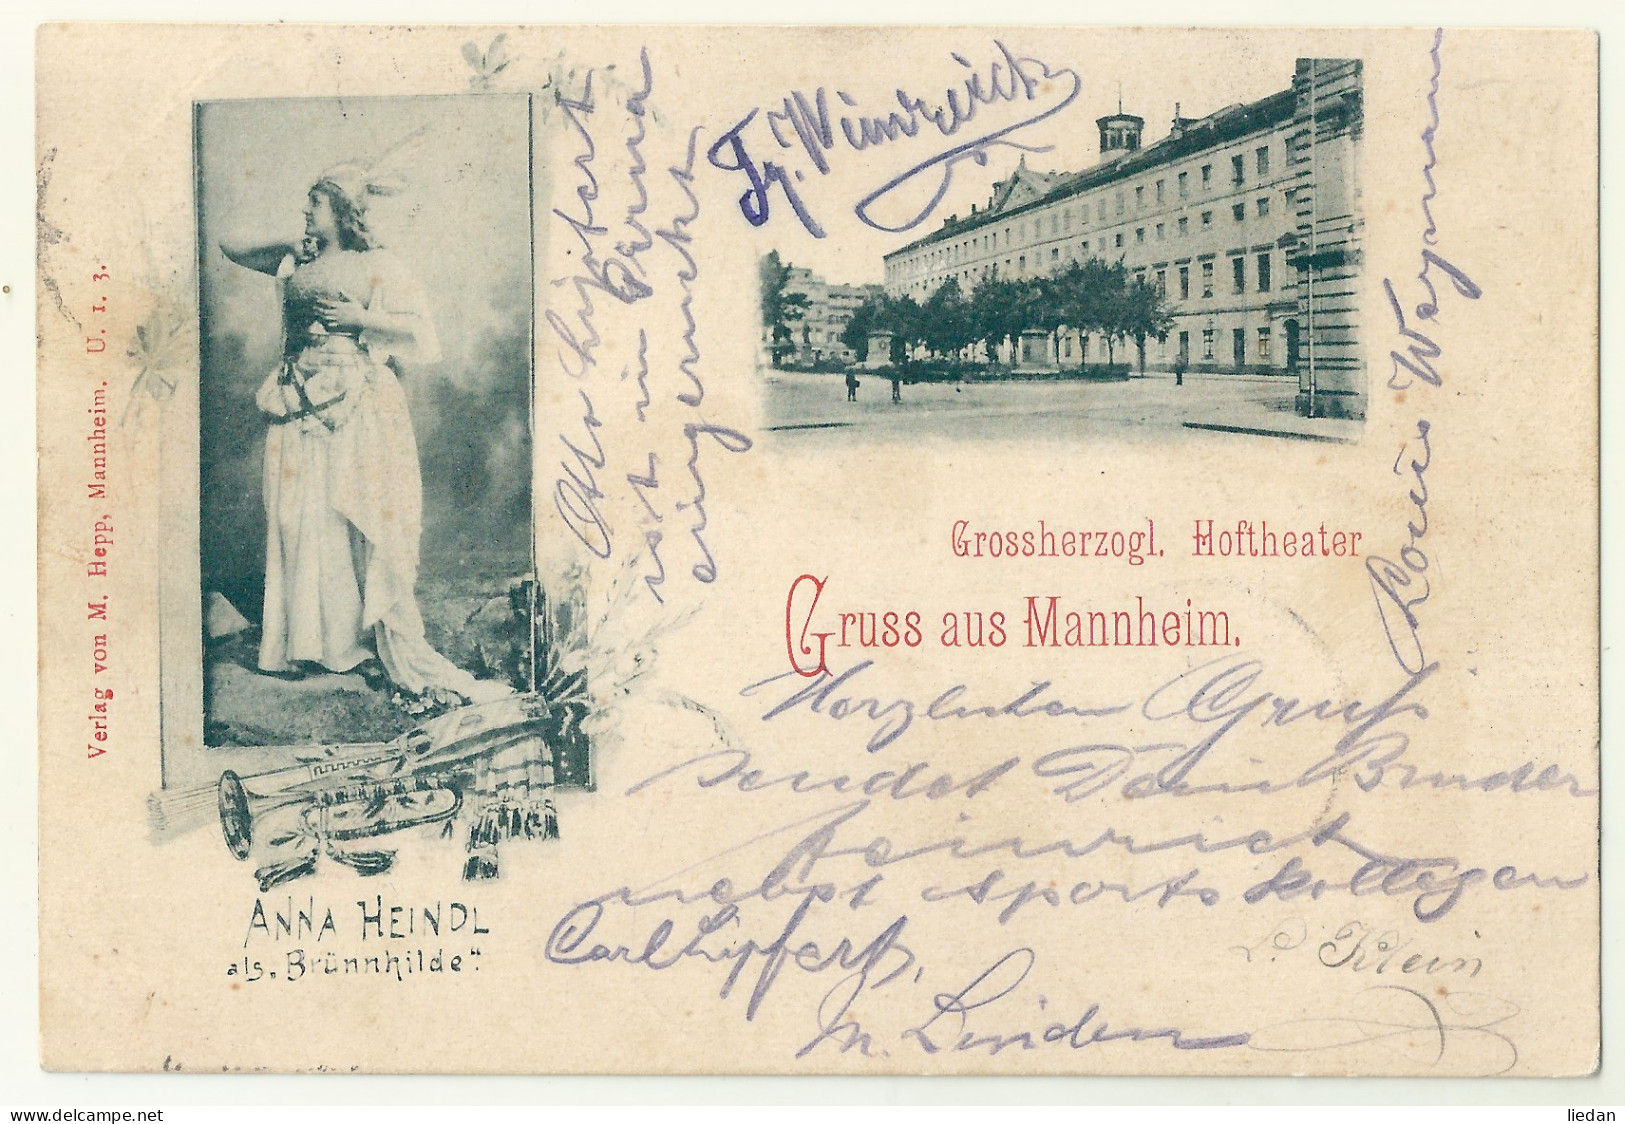 Verlag von M. Hepp, Mannheim. U. 1. 3.
Otto Lipfert
ist in Parma
eingerückt
Weinreich
Louis Weymann
Grossherzogl. Hoftheater
Gruss aus Mannheim.
Herzlichen Gruß
sendet Dein Bruder
Heinrich
nebst Sportskollegen
Carl Lipfert,
L. Klein
M. Linden
ANNA HEINDL
als „Brünnhilde".
www.delcampe.net
liedan